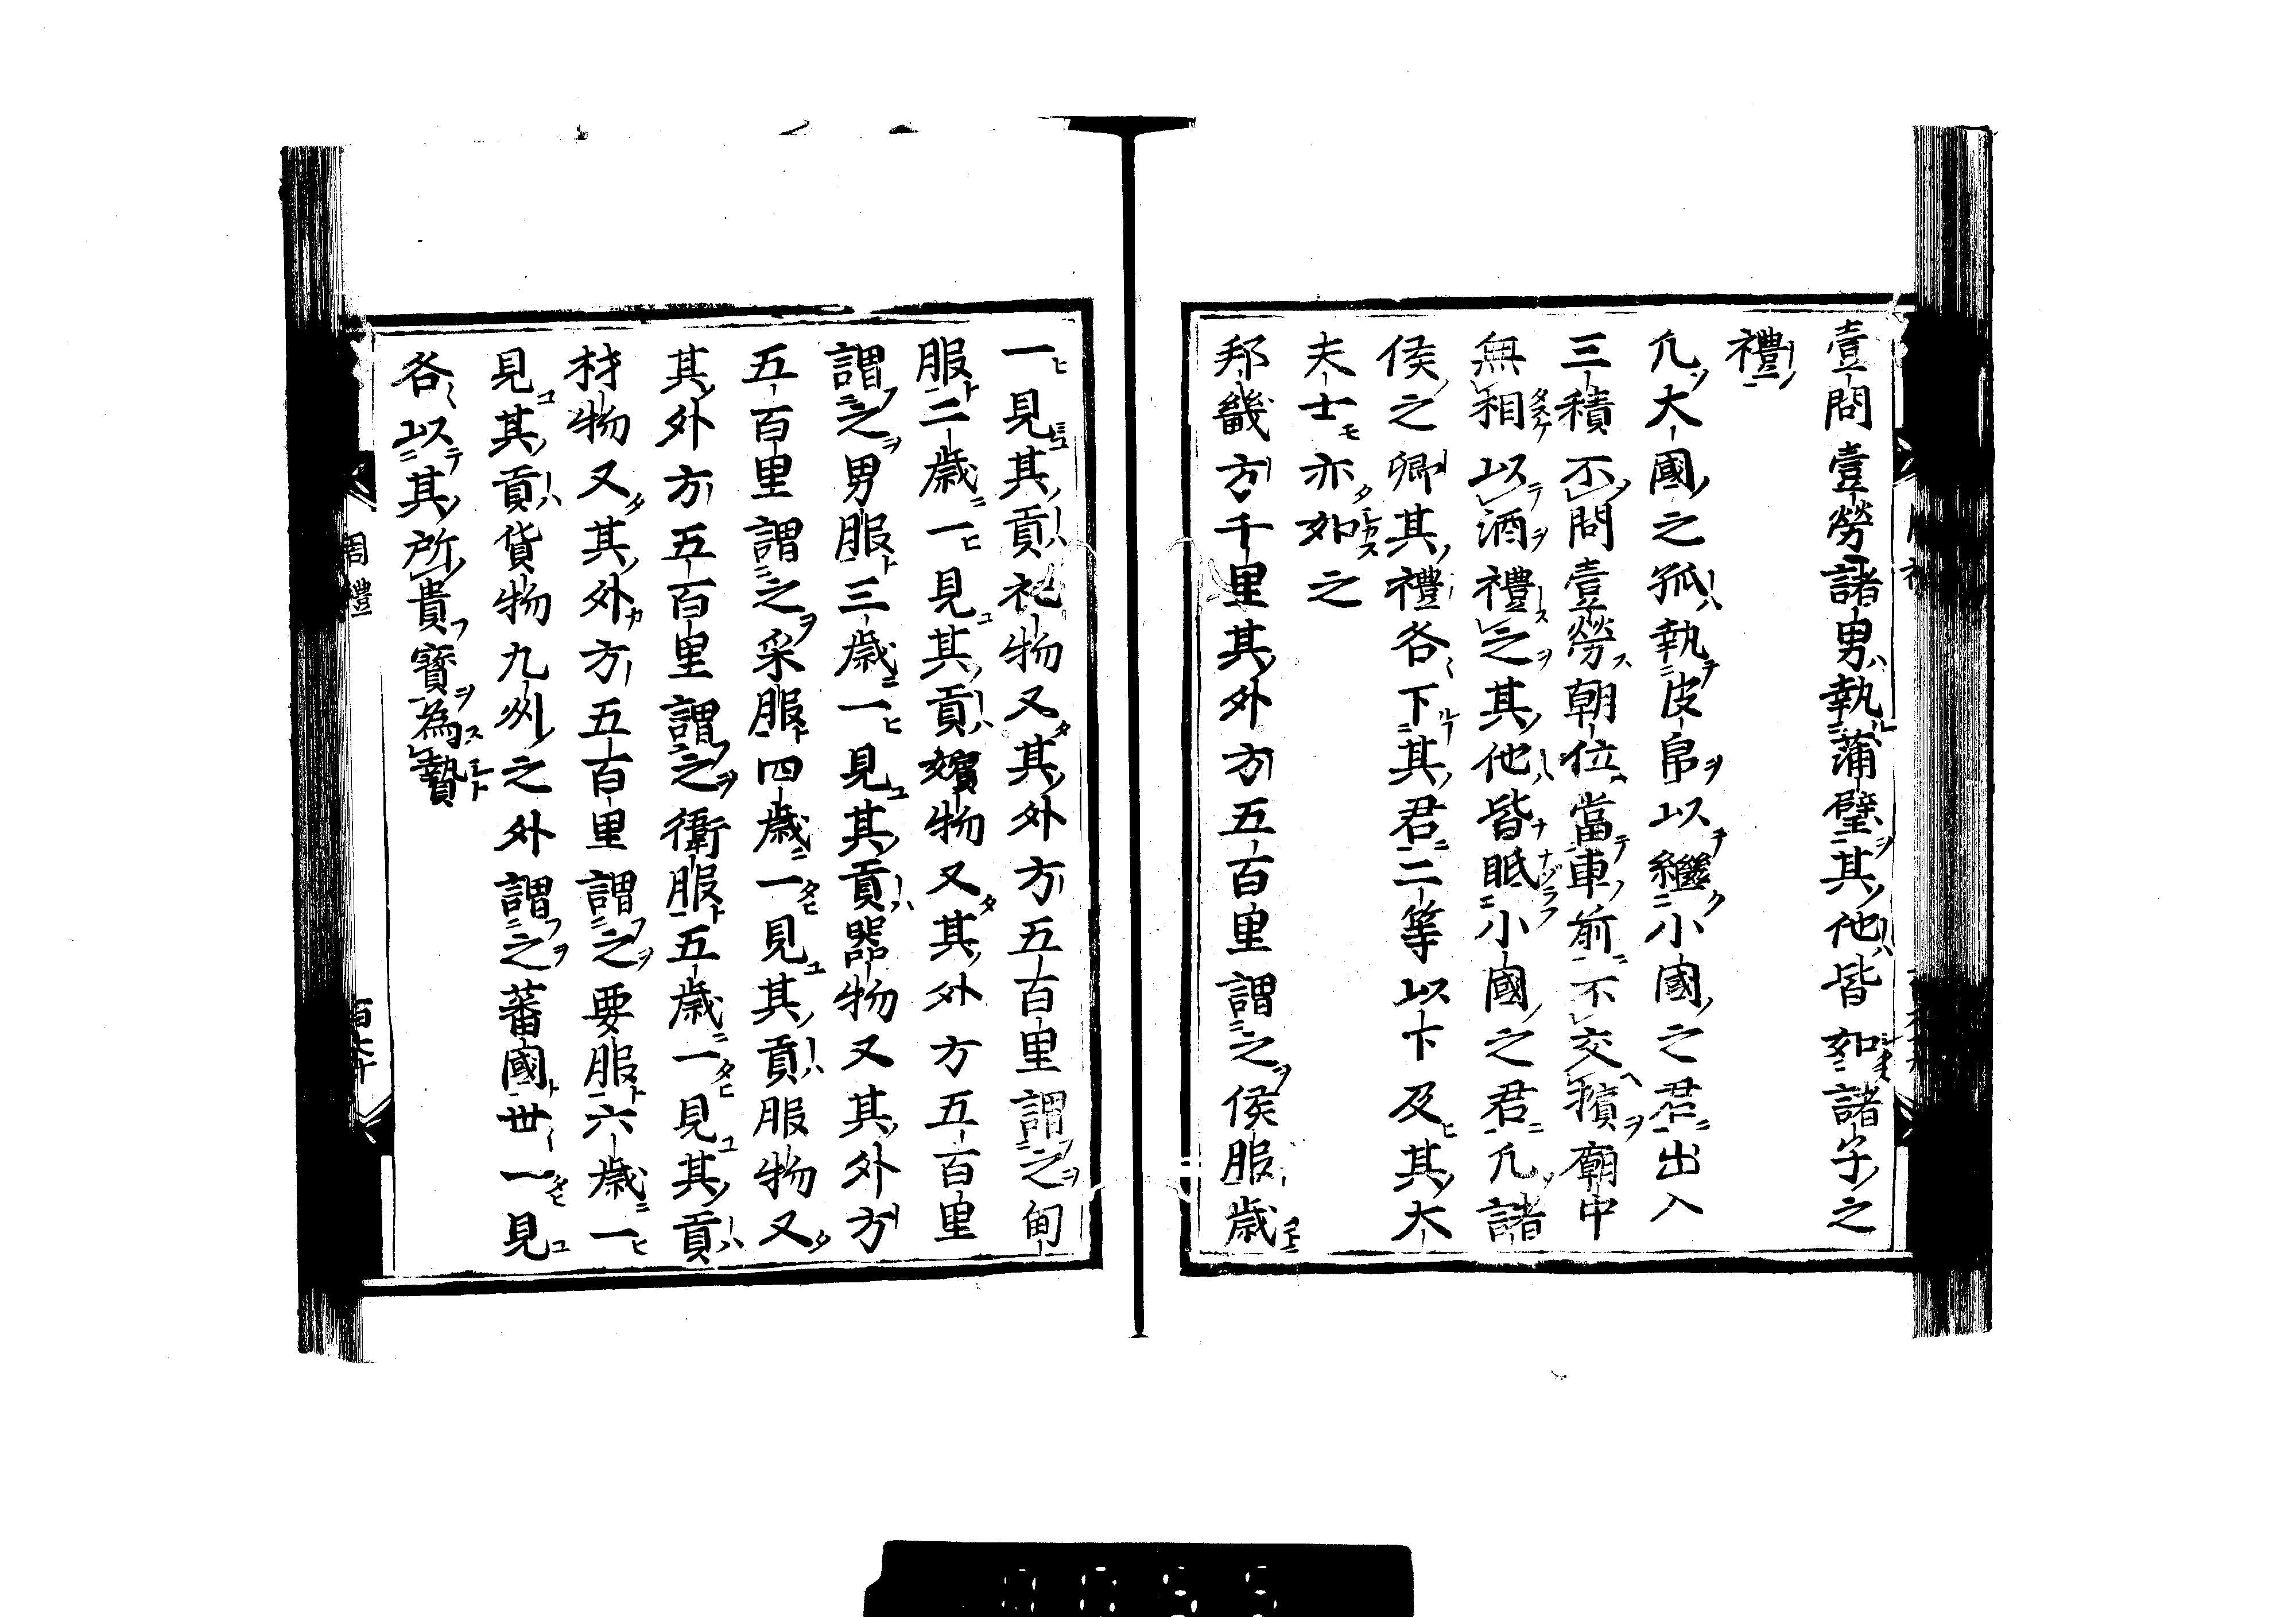 壹問壹勞諸男執蒲璧其他皆如諸子之
禮
凡大國之孤執皮帛以繼小國之君出入
三積不問壹勞朝位當車前不交擯廟中
無相以酒禮之其他皆眡小國之君凡諸
侯之卿其禮各下其君二等以下及其大
夫士亦如之
邦畿方千里其外方五百里謂之侯服歲
一見其貢祀物又其外方五百里謂之甸
服二歲一見其貢嬪物又其外方五百里
謂之男服三歲一見其貢器物又其外方
五百里謂之采服四歲一見其貢服物又
其外方五百里謂之衛服五歲一見其貢
材物又其外方五百里謂之要服六歲一
見其貢貨物九州之外謂之蕃國世一見
各以其所貴寶為摯
周禮